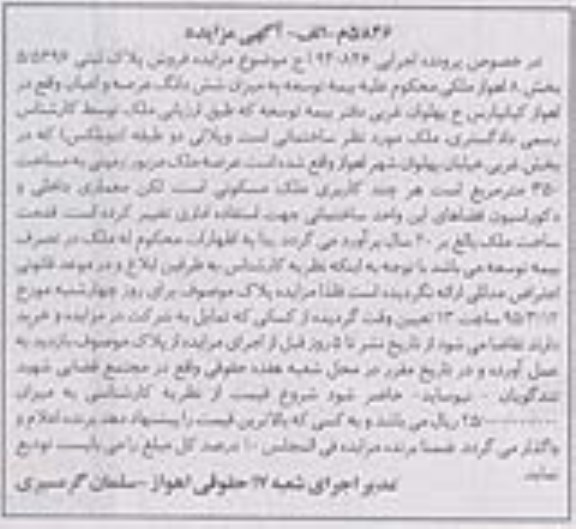 ۵۸۲۶م-الف- آگهی مزایده
در خصوص پرونده اجرایی ۹۴۰۸۲۶ اج موضوع مزایده فروش پلاک ثبتی
بخش ۸ اهواز ملکی محکوم علیه بیمه توسعه به میزان شش دانگ عرصه و اعیان واقع در
اهواز کیانپارس خ پهلوان غربی دفتر بیمه توسعه که طبق ارزیابی ملک توسط کارشناس
رسمی دادگستری، ملک مورد نظر ساختمانی است ویلائی دو طبقه (دوبلکس) که در
بخش غربی خیابان پهلوان شهر اهواز واقع شده است عرصه ملک مزبور زمینی به مساحت
۳۵۰ مترمربع است هر چند کاربری ملک مسکونی است لکن معماری داخلی و
دکوراسیون فضاهای این واحد ساختمانی جهت استفاده اداری تغییر کرده است. قدمت
ساخت ملک بالغ بر ۲۰ سال برآورد می گردد بنا به اظهارات محکوم له ملک در تصرف
بیمه توسعه می باشد با توجه به اینکه نظریه کارشناس به طرفین ابلاغ و در موعد قانونی
اعتراض مدللی ارائه نگردیده است فلذا مزایده پلاک موصوف برای روز چهارشنبه مورخ
۹۵/۳/۱۲ ساعت ۱۳ تعیین وقت گردیده از کسانی که تمایل به شرکت در مزایده و خرید
دارند تقاضا می شود از تاریخ نشر تا ۵ روز قبل از اجرای مزایده از پلاک موصوف بازدید به
عمل آورده و در تاریخ مقرر در محل شعبه هفده حقوقی واقع در مجتمع قضایی شهید
تندگویان - نیوساید- حاضر شود شروع قیمت از نظریه کارشناسی به میزان
ریال می باشد و به کسی که بالاترین قیمت را پیشنهاد دهد برنده اعلام و
واگذار می گردد. ضمنا برنده مزایده فی المجلس ۱۰ درصد کل مبلغ را می بایست تودیع
نماید.
مدیر اجرای شعبه ۱۷ حقوقی اهواز -سلمان گرمسیری